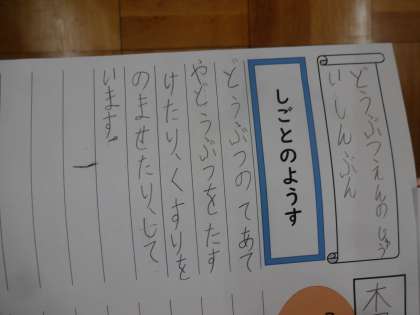 どうぶつえんのじゅう
いしんぶん
しごとのようす
どうぶつのてあて
やどうぶつをたす
けたり、くすりを
のませたり、して
います。
木